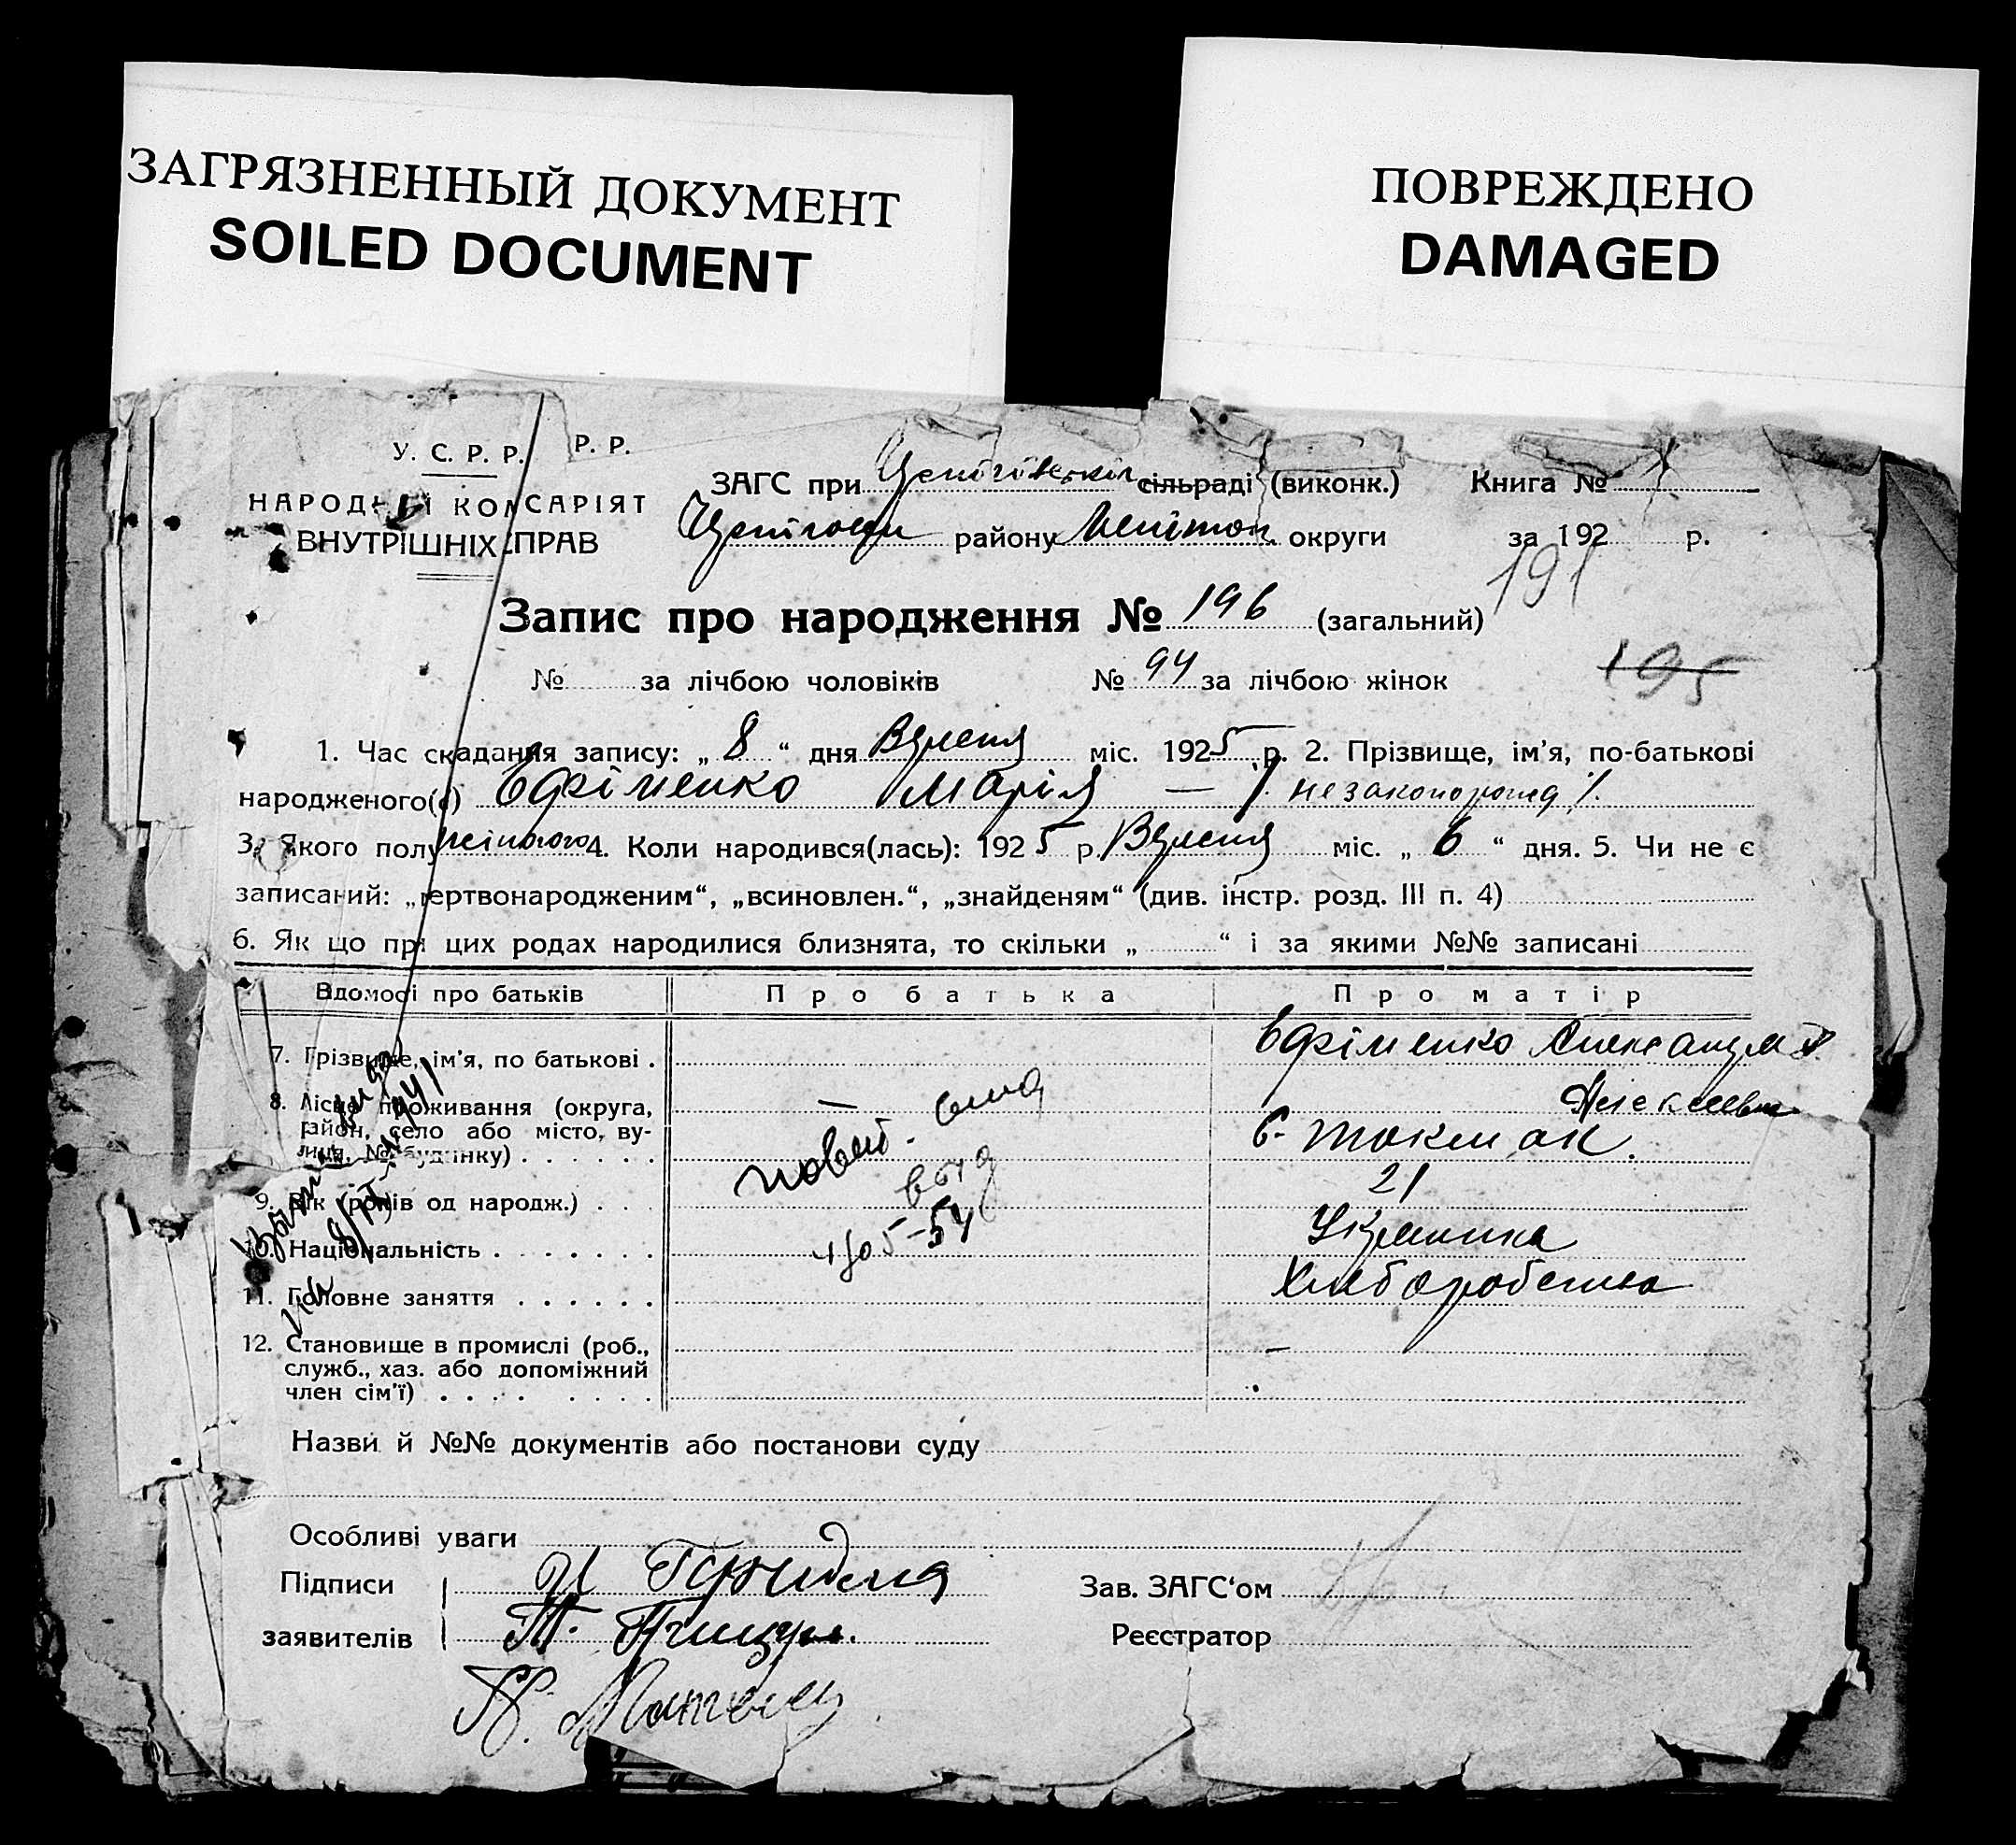 ЗАГРЯЗНЕННЫЙ ДОКУМЕНТ
SOILED DOCUMENT
ПОВРЕЖДЕНО
DAMAGED
У. С. Р. Р. Р. Р.
НАРОДН Й КОМ САРІЯТ
ВНУТРІШНІХ СПРАВ
ЗАГС при сільраді (виконк.) Книга №
району округи за 192 р.
191
Запис про народження № 196 (загальний)
№ за лічбою чоловіків № 94 за лічбою жінок
195
1. Час складання запису: „ 8 “ дня Вересня міс. 1925 р. 2. Прізвище, ім’я, по-батькові
народженого(ї) Єфіменко Марія —
3. Якого полу жіночого 4. Коли народився(лась): 1925 р. Вересня міс. „ 6 “ дня. 5. Чи не є
записаний: „мертвонародженим“, „всиновлен.“, „знайденям“ (див. інстр. розд. III п. 4)
6. Як що при цих родах народилися близнята, то скільки „ “ і за якими №№ записані
Відомості про батьків Про батька Про матір
7. Прізвище, ім’я, по батькові . Єфіменко Александра
Алексеевна
8. Місце проживання (округа,
район, село або місто, ву-
лиця, № будинку) . . . . . . — Б-Токмак.
9. Вік (років од народж.) . . . 21
10. Національність . . . . . . . Українка
11. Головне заняття . . . . . . Хліборобство
12. Становище в промислі (роб., —
служб., хаз. або допоміжний
член сім’ї) . . . . . . . .
Назви й №№ документів або постанови суду
Особливі уваги
Підписи
Зав. ЗАГС‘ом
заявителів
Реєстратор